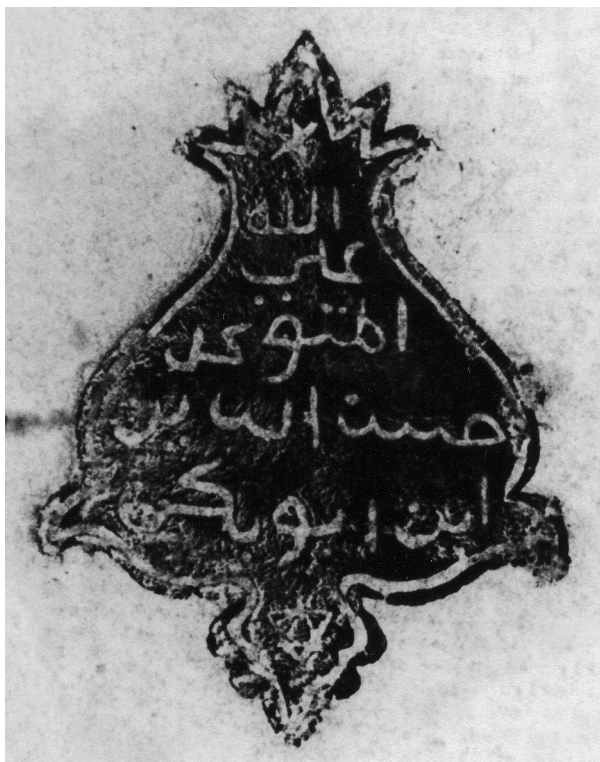 الله
على
المتوكل
حسن الدين
ابن ابو بكر